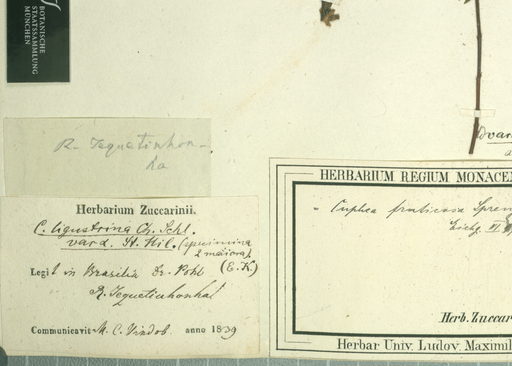 BOTANISCHE
STAATSSAMMLUNG
MÜNCHEN
R. Jequetinhon-
ha
Herbarium Zuccarinii.
C. ligustrina Ch. Schl.
var α. St. Hil. (specimina
2 maiora)
Legit in Brasilia Dr. Pohl (E.K.)
R. Jequetinhonha
Communicavit M. C. Vindob. anno 1839
HERBARIUM REGIUM MONACEN
Cuphea fruticosa Spren
Herb. Zuccar
Herbar Univ. Ludov. Maximil